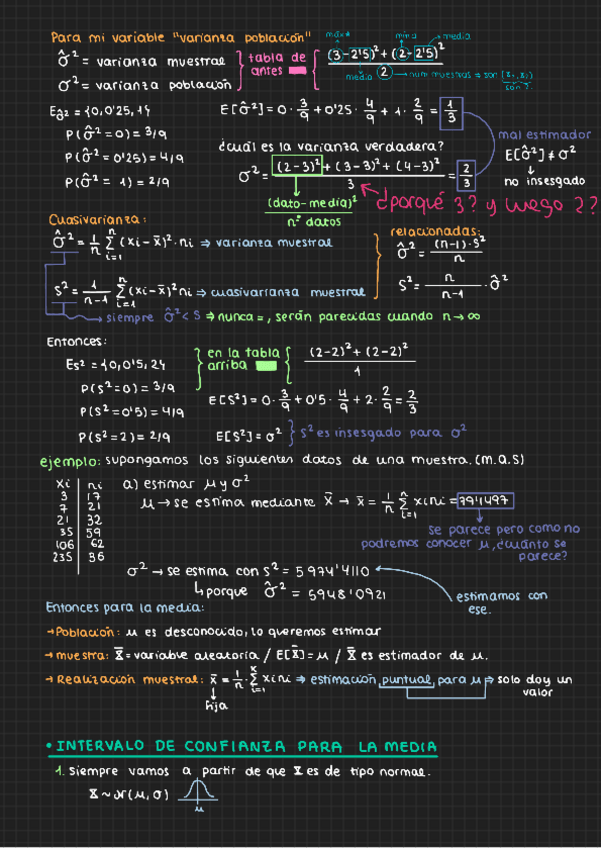 Para mi variable "varianza población"
σ̂² = varianza muestral } tabla de antes { (3-2'5)²+(2-2'5)² / 2
máx
mín
media
media
σ² = varianza población
Eσ̂² = {0,0'25,1}
E[σ̂²] = 0 · 3/9 + 0'25 · 4/9 + 1 · 2/9 = 1/3
P(σ̂²=0) = 3/9
P(σ̂²=0'25) = 4/9
P(σ̂²=1) = 2/9
mal estimador
E[σ̂²] ≠ σ²
↓
no insesgado
¿cuál es la varianza verdadera?
σ² = (2-3)²+(3-3)²+(4-3)² / 3 = 2/3
(dato-media)² / nº datos
¿porqué 3? y luego 2??
Cuasivarianza:
σ̂² = 1/n Σ(i=1, n) (xi-x̄)²·ni ⇒ varianza muestral
s² = 1/n-1 Σ(i=1, n) (xi-x̄)²ni ⇒ cuasivarianza muestral
relacionadas:
σ̂² = (n-1)·s² / n
s² = n / n-1 · σ̂²
→ siempre σ̂² < S ⇒ nunca =, serán parecidas cuando n→∞
Entonces:
Es² = {0,0'5,2}
en la tabla arriba { (2-2)²+(2-2)² / 1
P(s²=0) = 3/9
P(s²=0'5) = 4/9
P(s²=2) = 2/9
E[S²] = 0 · 3/9 + 0'5 · 4/9 + 2 · 2/9 = 2/3
E[S²] = σ² } s² es insesgado para σ²
ejemplo: supongamos los siguientes datos de una muestra. (M.a.s)
xi | ni
3 | 17
7 | 21
21 | 32
35 | 59
106 | 62
235 | 36
a) estimar μ y σ²
μ → se estima mediante X̄ → x̄ = 1/n Σ(i=1, n) xini = 79'4497
se parece pero como no
podremos conocer μ, ¿cuánto se
parece?
σ² → se estima con s² = 5974'4110
↳ porque σ̂² = 5948'0921
estimamos con
ese.
Entonces para la media:
→ Población: μ es desconocido, lo queremos estimar
→ muestra: X̄ = variable aleatoria / E[X̄] = μ / X̄ es estimador de μ.
→ Realización muestral: x̄ = 1/n · Σ(i=1, k) xini ⇒ estimación puntual para μ ⇒ solo doy un
valor
↓
fija
• INTERVALO DE CONFIANZA PARA LA MEDIA
1. Siempre vamos a partir de que X es de tipo normal.
X ~ N(μ, σ)
μ